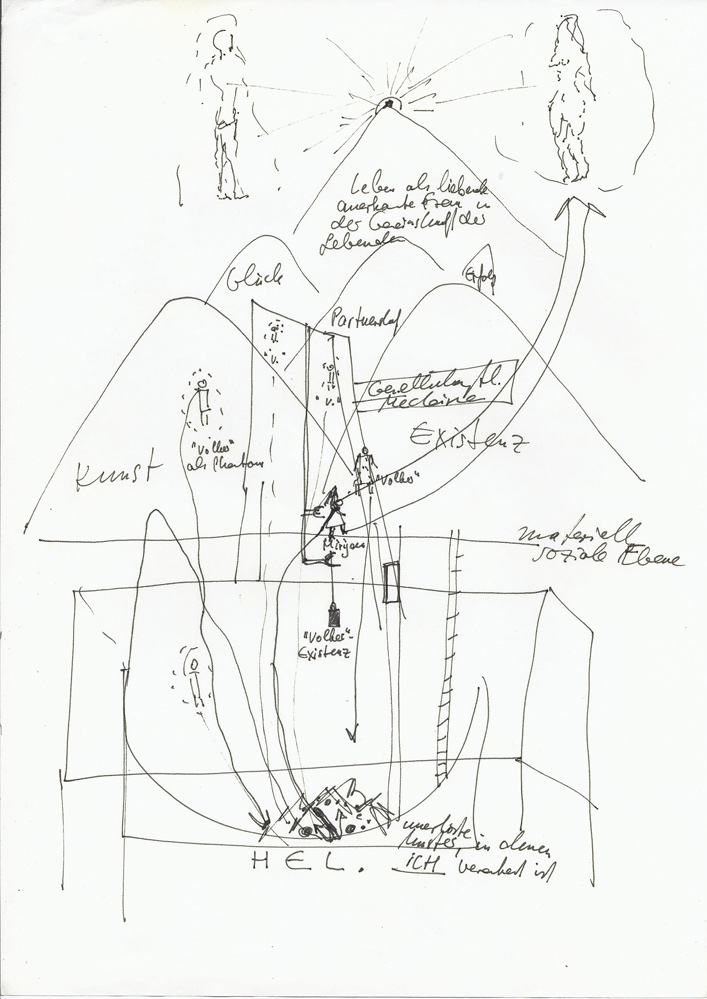 Leben als liebende
anerkannte Frau in
der Gemeinschaft der
Lebenden
Glück
Erfolg
Partnerschaf
"V."
"V."
Gesellschaftl.
"Volker"
als Phantom
Kunst
Existenz
"Volker"
Mirjam
materiell
soziale Ebene
"Volker"-
Existenz
unerlöste
in denen
ICH verankert ist
HEL.